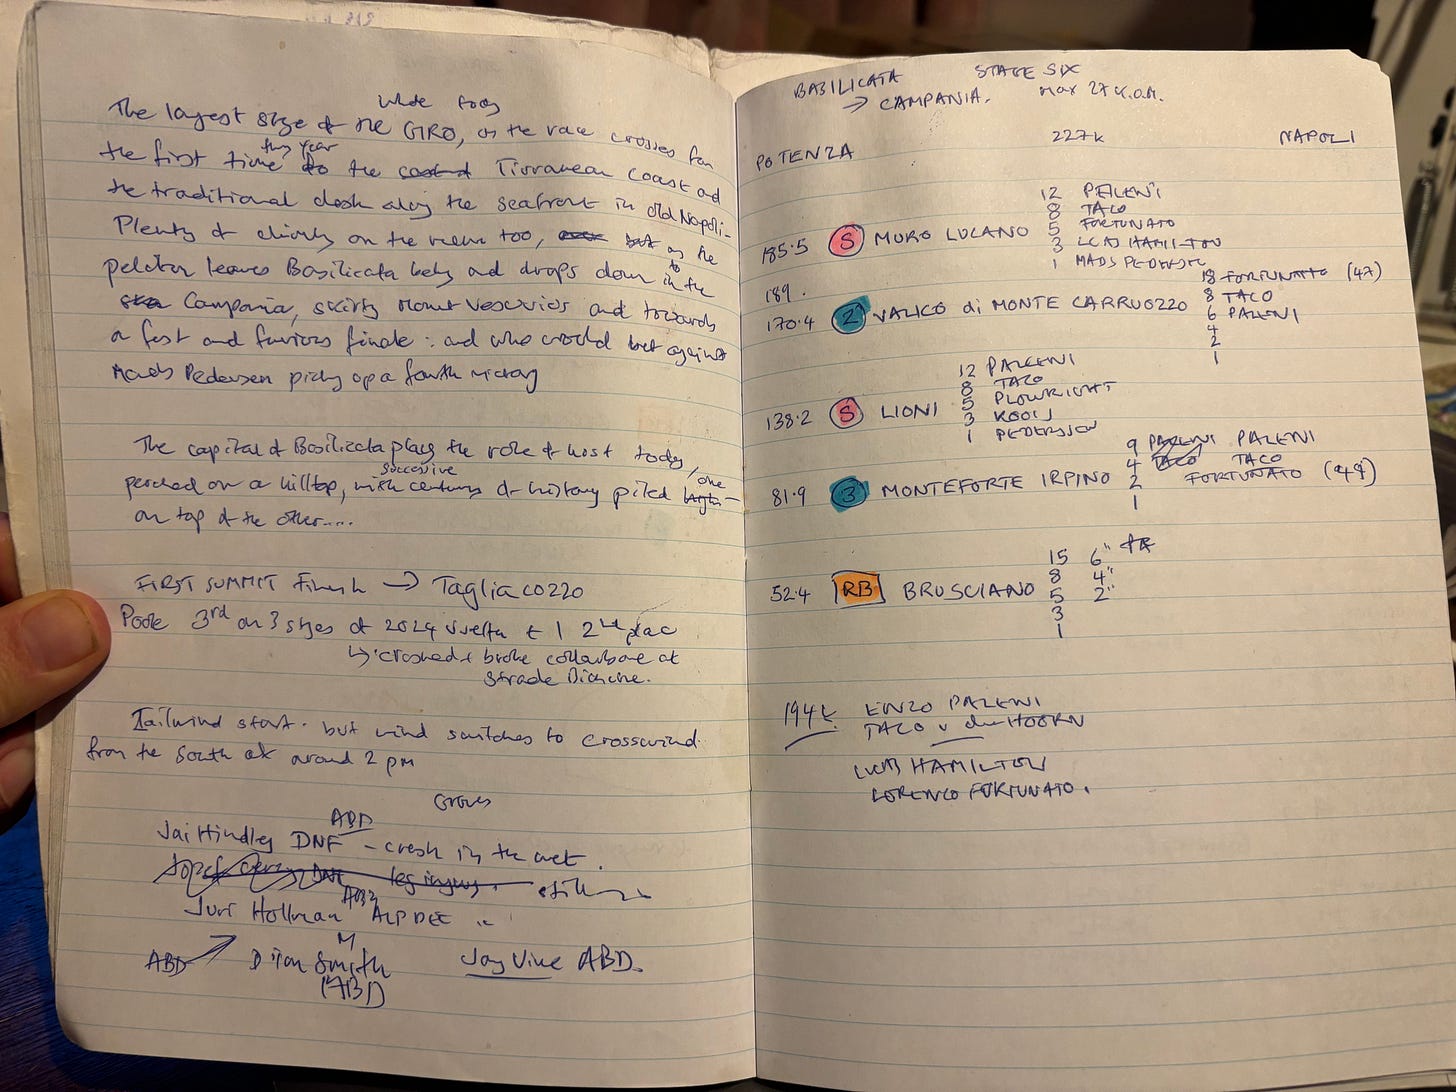 The largest stage of the GIRO, as the race crosses for
the first time this year to the Tirranean coast and
the traditional dash along the seafront in old Napoli.
Plenty of climbing on the menu too, as the
peloton leaves Basilicata and drops down in to the
Campania, skirts Mount Vesuvius and towards
a fast and furious finale : and who would bet against
Mads Pedersen picking up a fourth victory
The capital of Basilicata plays the role of host today,
perched on a hilltop, with successive centuries of history piled one
on top of the other....
FIRST SUMMIT Finish → Tagliacozzo
Poole 3rd on 3 stages of 2024 Vuelta & 1 2nd place
↳ crashed & broke collarbone at
Strade Bianche.
Tailwind start. but wind switches to crosswind
from the south at around 2 pm
ABD
Jai Hindley DNF - crash in the wet.
Juri Hollman ALP DEC "
ABD Dion Smith Jay Vine ABD.
(ABD)
BASILICATA STAGE SIX
→ CAMPANIA. Max 27 K.O.M.
POTENZA 227k NAPOLI
12 PALENI
8 TACO
185.5 S MURO LUCANO 5 FORTUNATO
3 LUCAS HAMILTON
1 MADS PEDERSEN
189.
18 FORTUNATO (47)
170.4 2 VALICO di MONTE CARRUOZZO 8 TACO
6 PALENI
4
2
1
12 PALENI
8 TACO
138.2 S LIONI 5 PLOWRIGHT
3 KOOIJ
1 PEDERSSEN
9 PALENI PALENI
4 TACO TACO
81.9 3 MONTEFORTE IRPINO 2 FORTUNATO (49)
1
15 6"
8 4"
52.4 RB BRUSCIANO 5 2"
3
1
194k ENZO PALENI
TACO v der HOORN
LUCAS HAMILTON
LORENZO FORTUNATO.